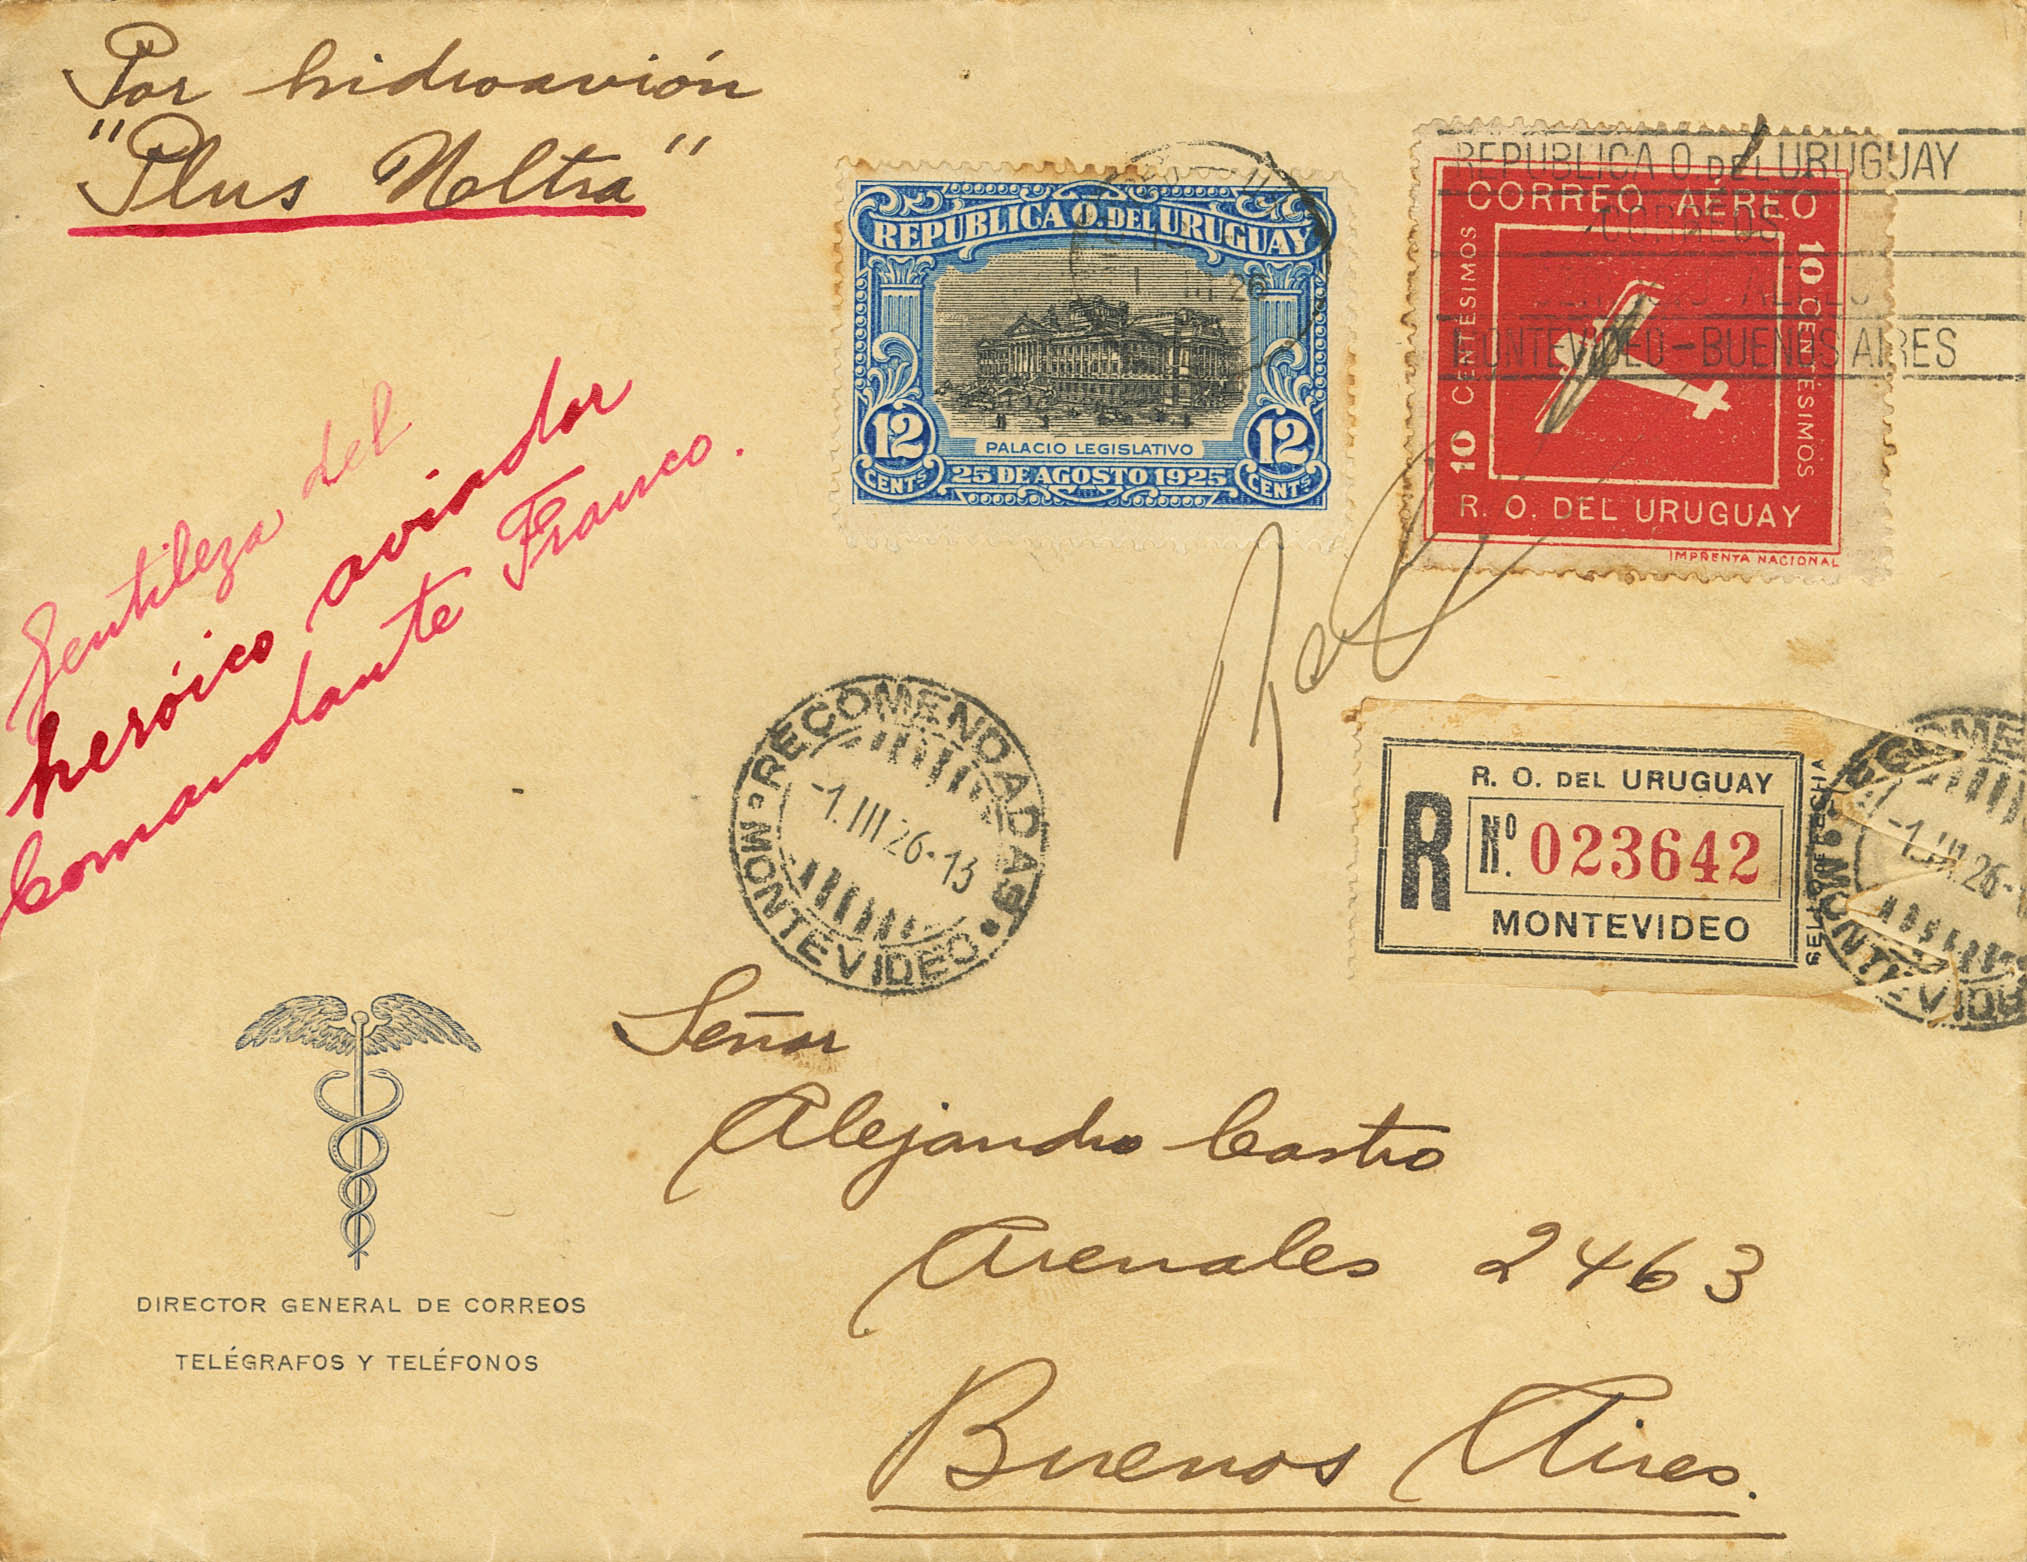 Por hidroavión
"Plus Noltra"
Gentileza del
heróico aviador
Comandante Franco.
REPUBLICA O. DEL URUGUAY
12 12
CENTS CENTS
PALACIO LEGISLATIVO
25 DE AGOSTO 1925
1 III 26
REPUBLICA O. DEL URUGUAY
CORREOS
AEREO
MONTEVIDEO-BUENOS AIRES
CORREO AÉREO
10 CENTESIMOS
10 CENTÉSIMOS
R. O. DEL URUGUAY
IMPRENTA NACIONAL
RECOMENDADAS
-1.III 26-13
MONTEVIDEO
R. O. DEL URUGUAY
R Nº. 023642
MONTEVIDEO
SELLO FECHA
-1.III.26-1
Señor
Alejandro Castro
Arenales 2463
Buenos Aires.
DIRECTOR GENERAL DE CORREOS
TELÉGRAFOS Y TELÉFONOS